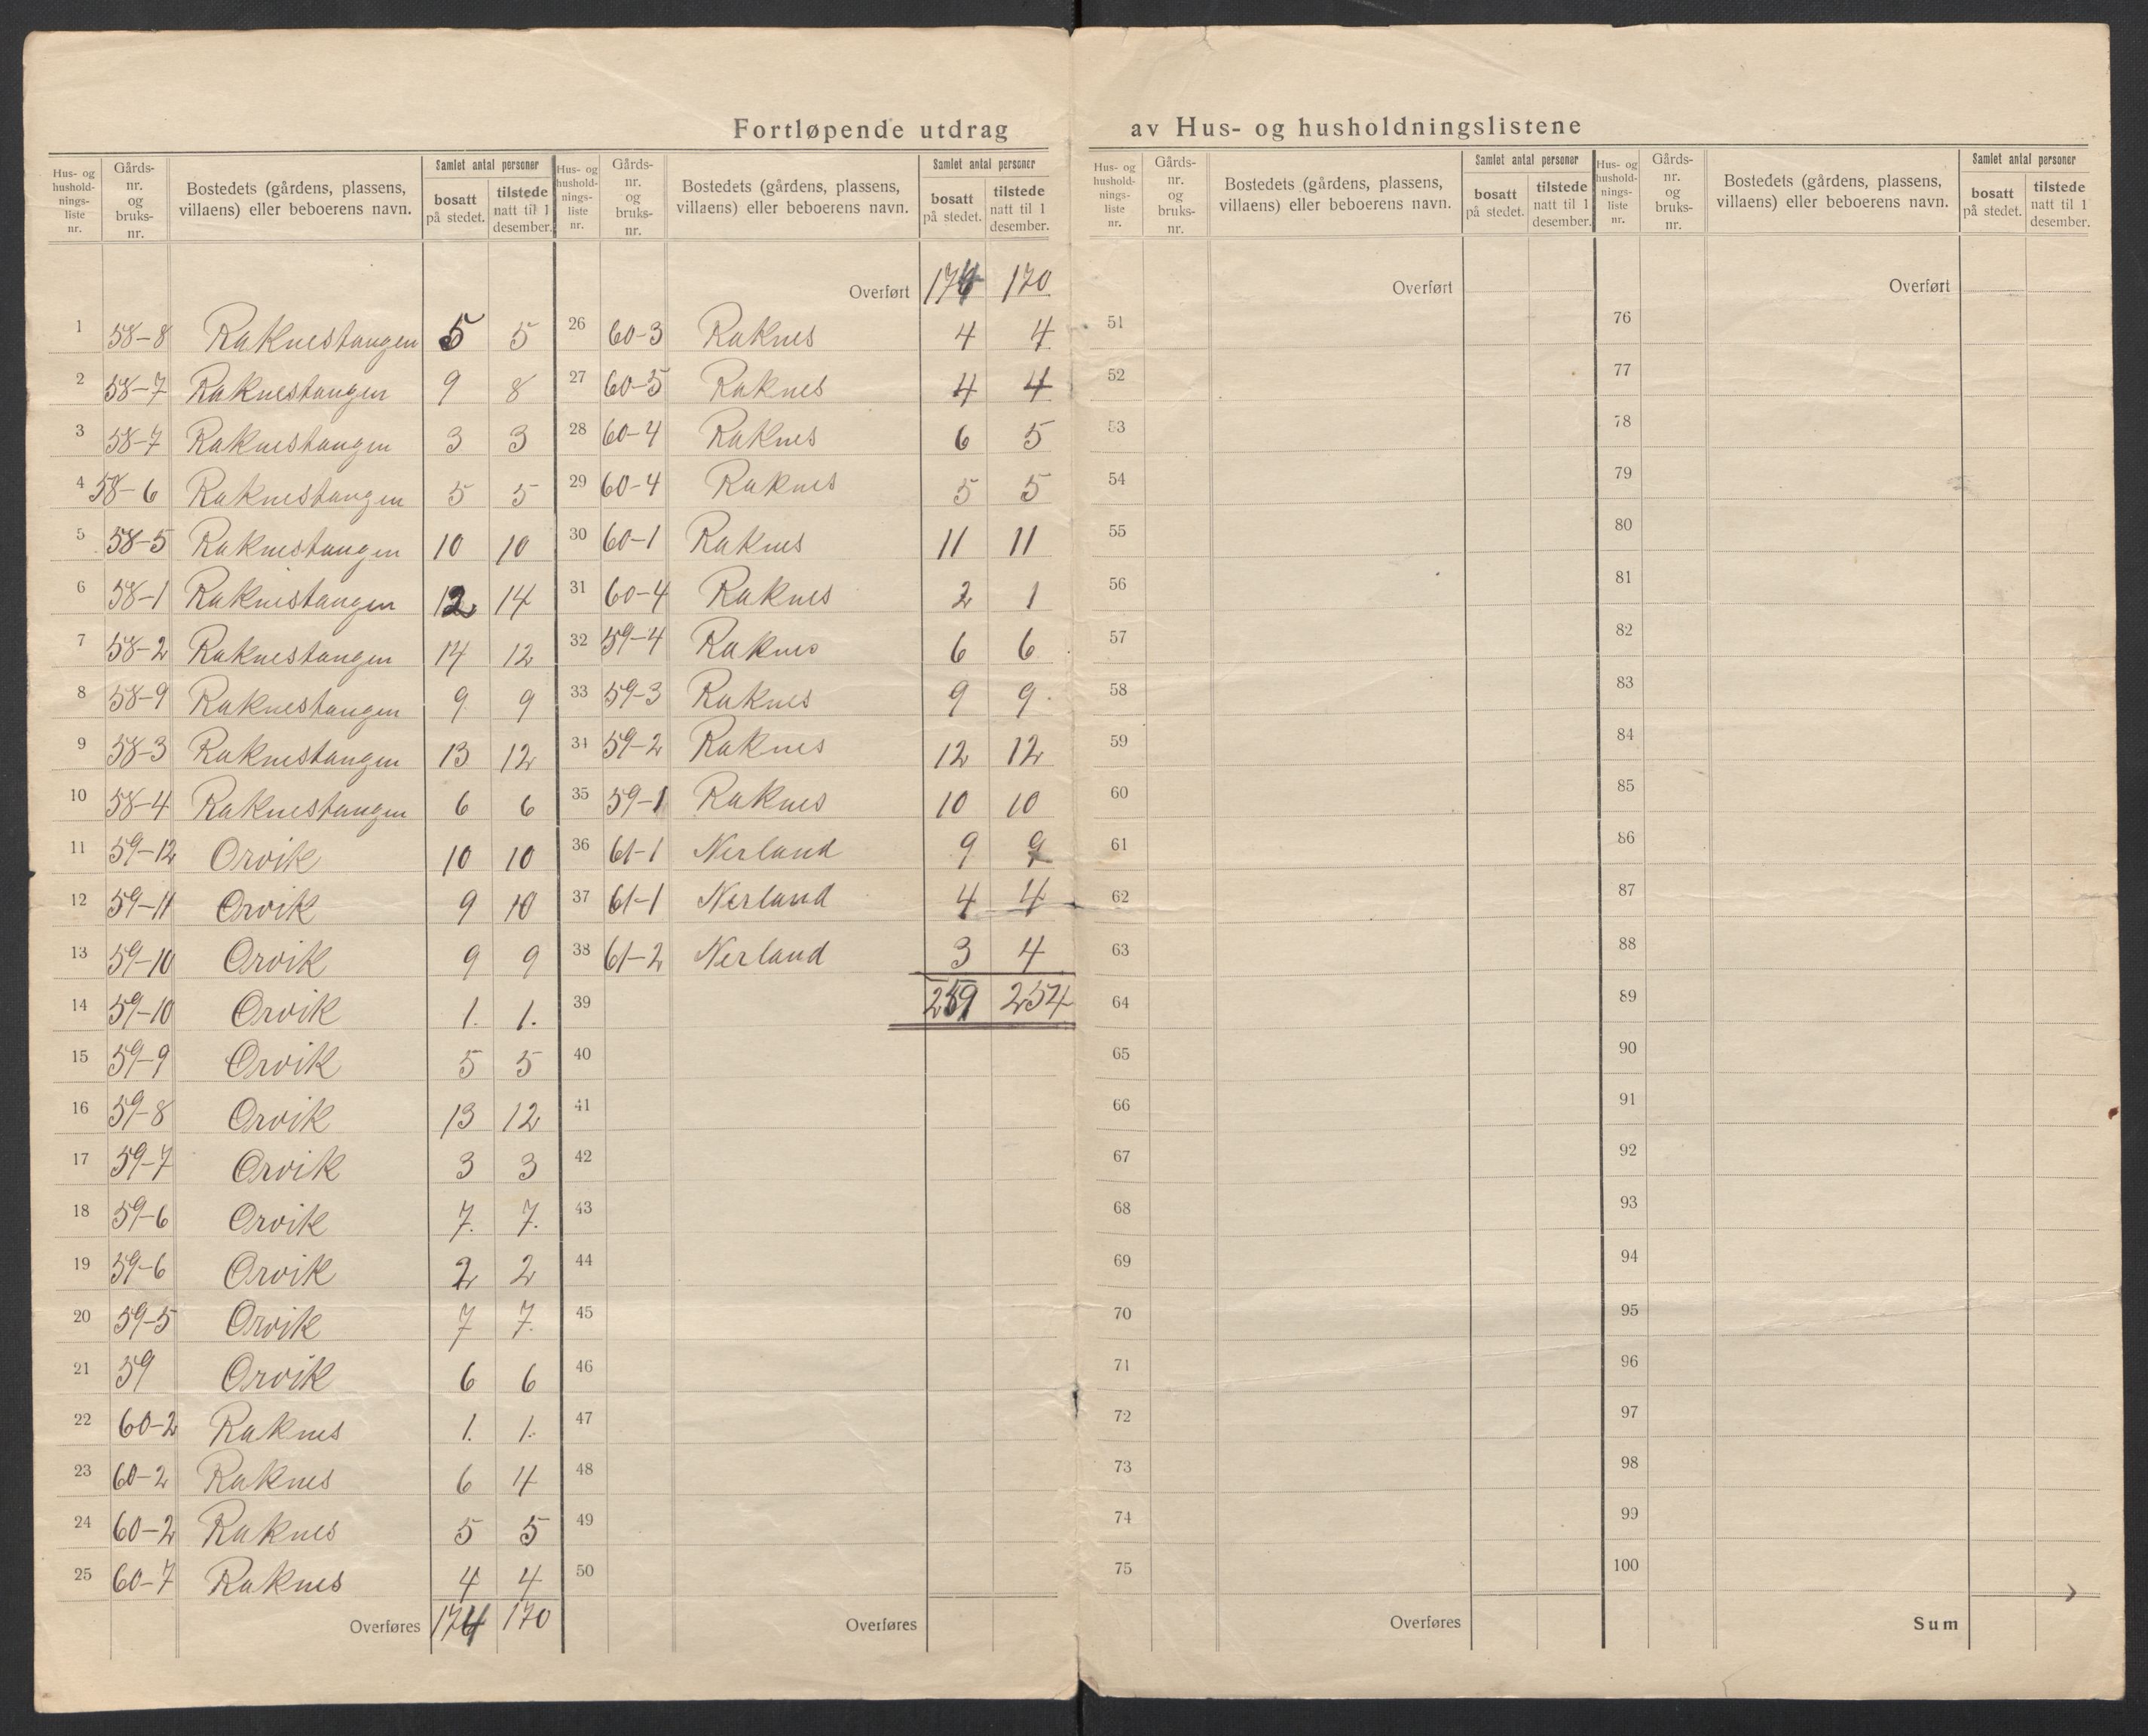 Fortløpende utdrag av Hus- og husholdningslistene
Hus- og hushold-nings-liste nr. Gårds-nr. og bruks-nr. Bostedets (gårdens, plassens, villaens) eller beboerens navn. Samlet antal personer bosatt på stedet. tilstede natt til 1 desember.
1 58-8 Raknestangen 5 5
2 58-7 Raknestangen 9 8
3 58-7 Raknestangen 3 3
4 58-6 Raknestangen 5 5
5 58-5 Raknestangen 10 10
6 58-1 Raknestangen 12 14
7 58-2 Raknestangen 14 12
8 58-9 Raknestangen 9 9
9 58-3 Raknestangen 13 12
10 58-4 Raknestangen 6 6
11 59-12 Orvik 10 10
12 59-11 Orvik 9 10
13 59-10 Orvik 9 9
14 59-10 Orvik 1. 1.
15 59-9 Orvik 5 5
16 59-8 Orvik 13 12
17 59-7 Orvik 3 3
18 59-6 Orvik 7. 7.
19 59-6 Orvik 2 2
20 59-5 Orvik 7 7.
21 59 Orvik 6 6
22 60-2 Raknes 1. 1.
23 60-2 Raknes 6 4
24 60-2 Raknes 5 5
25 60-7 Raknes 4 4
Overføres 174 170
Hus- og hushold-nings-liste nr. Gårds-nr. og bruks-nr. Bostedets (gårdens, plassens, villaens) eller beboerens navn. Samlet antal personer bosatt på stedet. tilstede natt til 1 desember.
Overført 174 170
26 60-3 Raknes 4 4
27 60-5 Raknes 4 4
28 60-4 Raknes 6 5
29 60-4 Raknes 5 5
30 60-1 Raknes 11 11
31 60-4 Raknes 2 1
32 59-4 Raknes 6 6
33 59-3 Raknes 9 9
34 59-2 Raknes 12 12
35 59-1 Raknes 10 10
36 61-1 Nerland 9 9
37 61-1 Nerland 4 4
38 61-2 Nerland 3 4
39 259 254
40
41
42
43
44
45
46
47
48
49
50
Overføres
Hus- og hushold-nings-liste nr. Gårds-nr. og bruks-nr. Bostedets (gårdens, plassens, villaens) eller beboerens navn. Samlet antal personer bosatt på stedet. tilstede natt til 1 desember.
Overført
51
52
53
54
55
56
57
58
59
60
61
62
63
64
65
66
67
68
69
70
71
72
73
74
75
Overføres
Hus- og hushold-nings-liste nr. Gårds-nr. og bruks-nr. Bostedets (gårdens, plassens, villaens) eller beboerens navn. Samlet antal personer bosatt på stedet. tilstede natt til 1 desember.
Overført
76
77
78
79
80
81
82
83
84
85
86
87
88
89
90
91
92
93
94
95
96
97
98
99
100
Sum